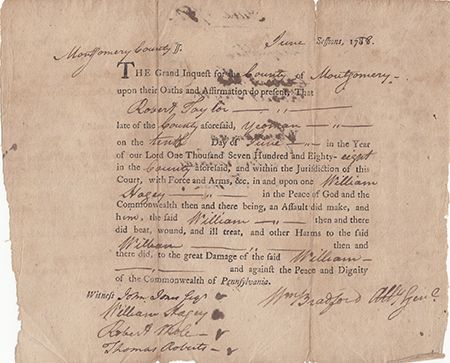 Montgomery County ss. June Sessions, 1788.
THE Grand Inquest for the County of Montgomery
upon their Oaths and Affirmation do present, That
Robert Taylor
late of the County aforesaid, Yeoman
on the tenth Day of June in the Year
of our Lord One Thousand Seven Hundred and Eighty-eight
in the County aforesaid, and within the Jurisdiction of this
Court, with Force and Arms, &c. in and upon one William
Hagey in the Peace of God and the
Commonwealth then and there being, an Assault did make, and
him, the said William then and there
did beat, wound, and ill treat, and other Harms to the said
William then and
there did, to the great Damage of the said William
and against the Peace and Dignity
of the Commonwealth of Pennsylvania.
Witness John Jones Esqr
William Hagey
Robert
Thomas Roberts
Wm Bradford Atty Genl